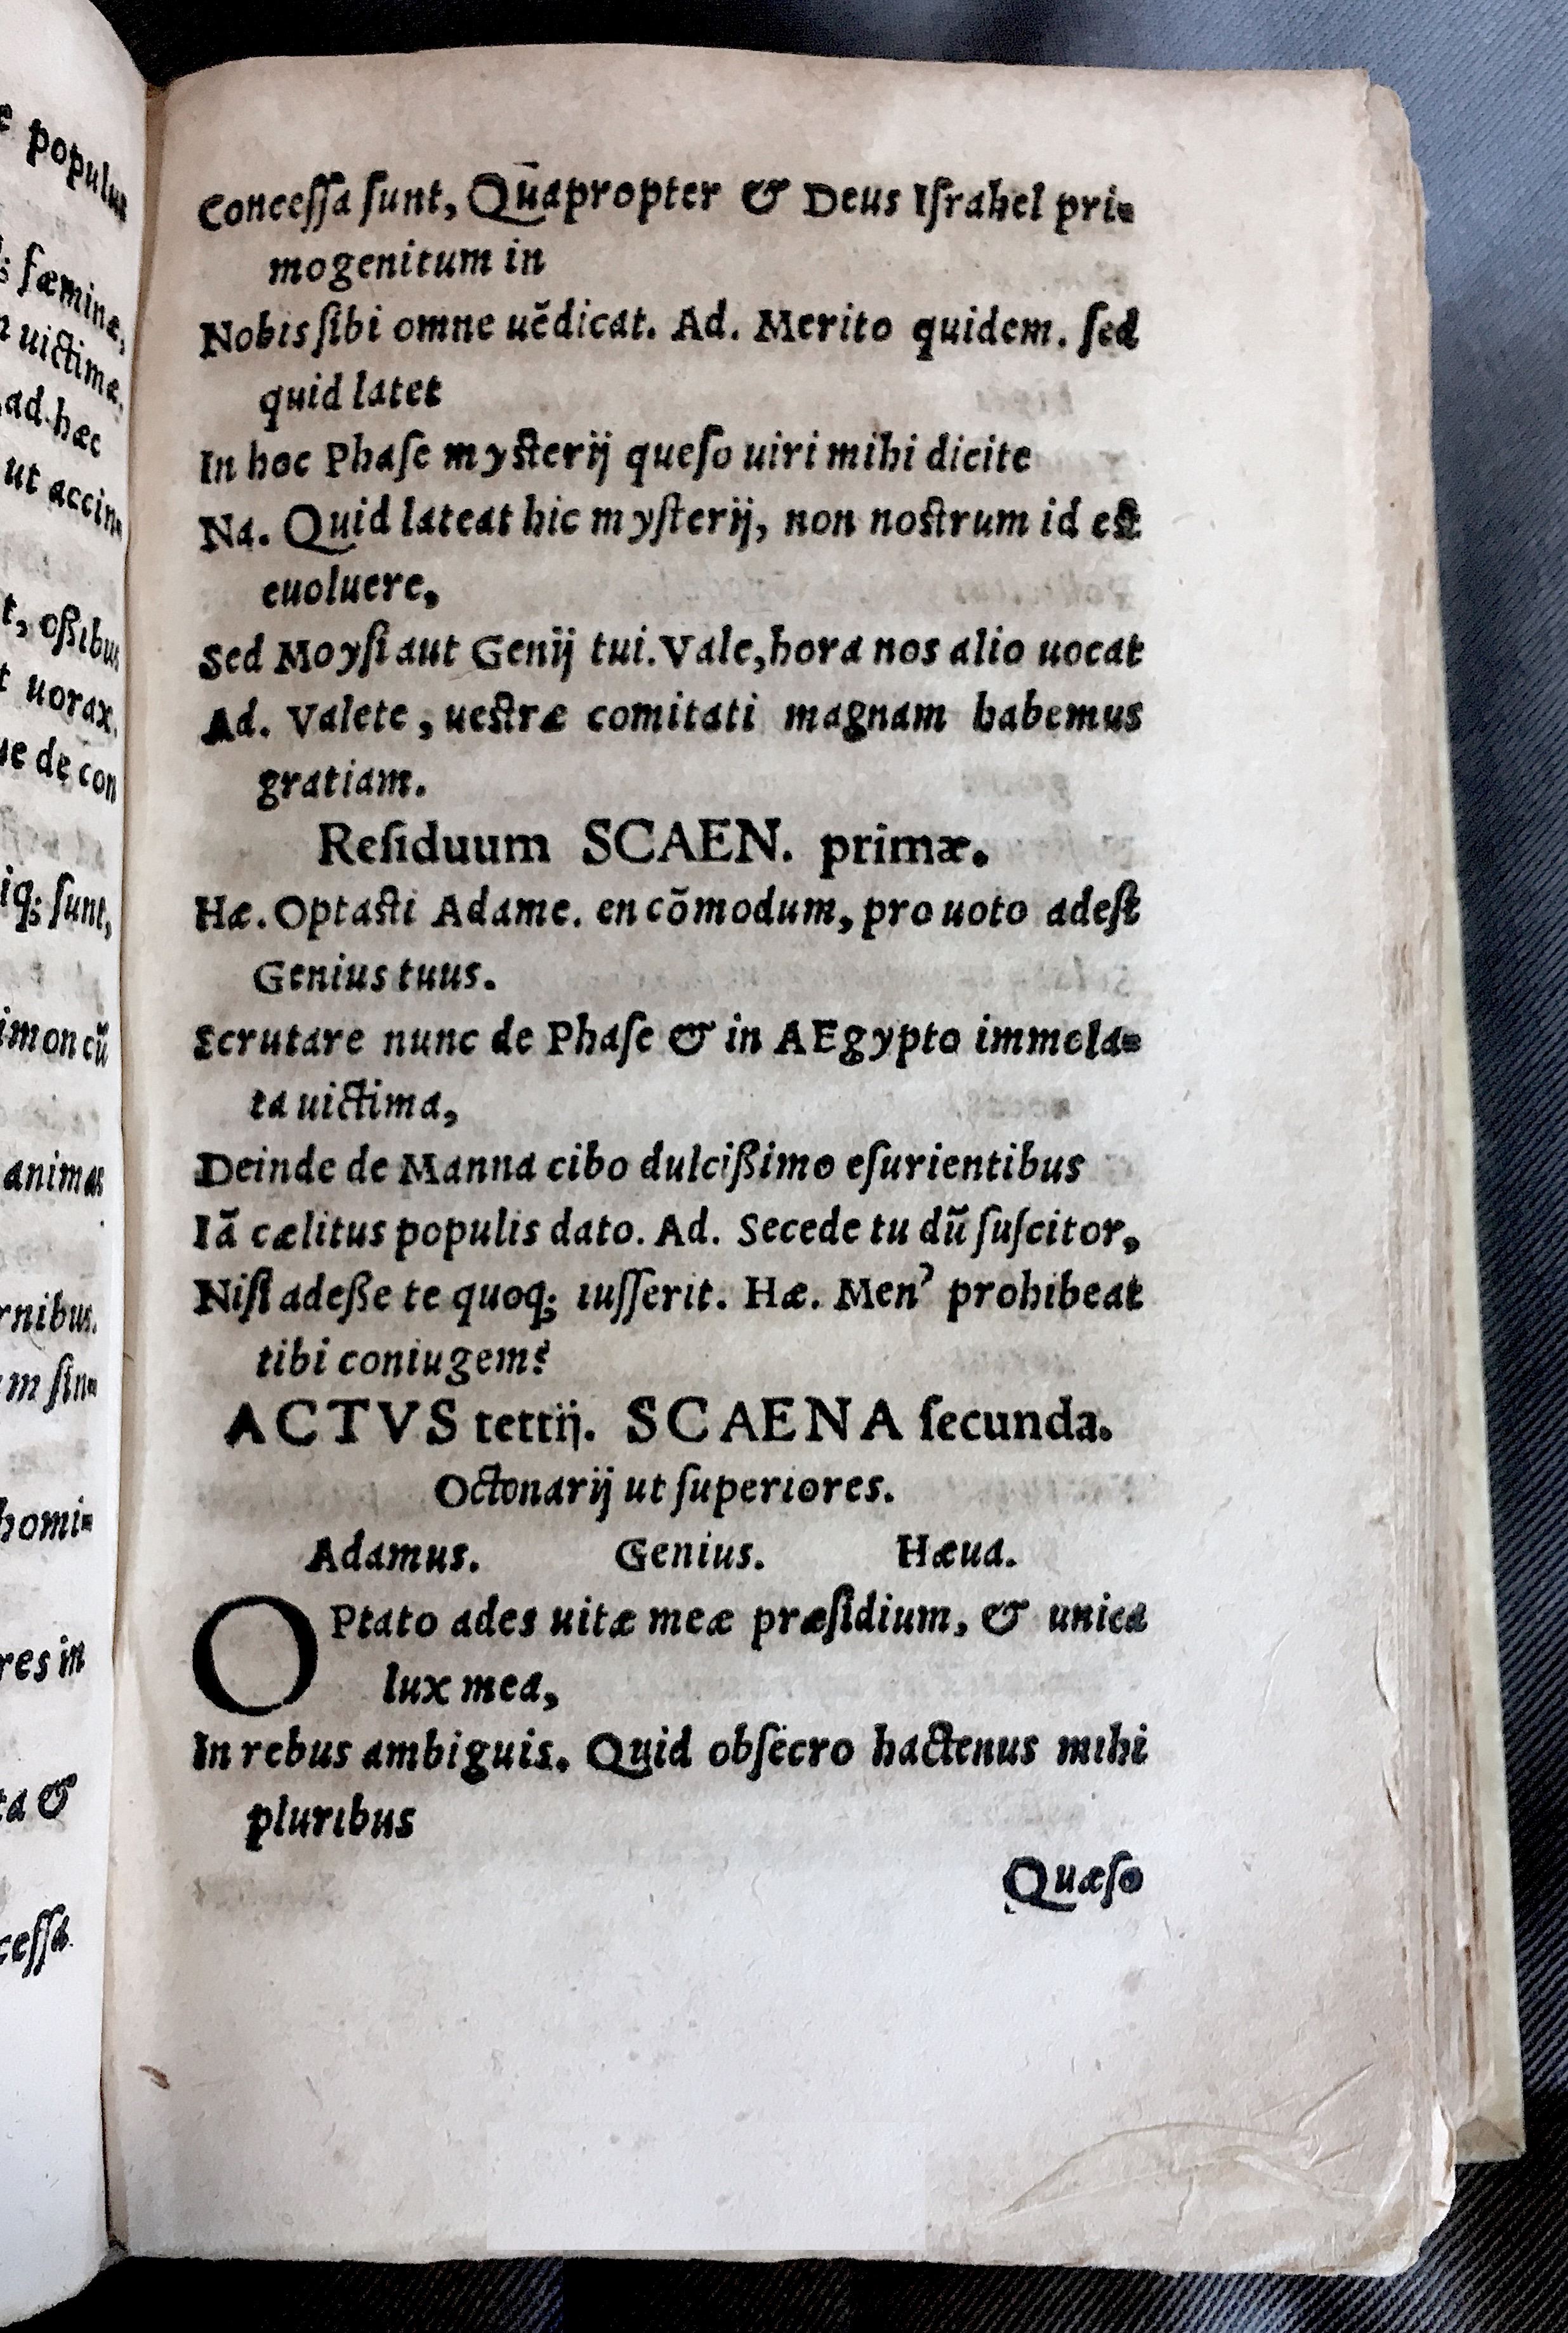 Conceſſa ſunt, Qūapropter & Deus Iſrahel pri-
mogenitum in
Nobis ſibi omne uēdicat. Ad. Merito quidem. ſed
quid latet
In hoc Phaſe myſterij queſo uiri mihi dicite
Na. Quid lateat hic myſterij, non noſtrum id eſt
euoluere,
Sed Moyſi aut Genij tui. Vale, hora nos alio uocat
Ad. Valete, ueſtræ comitati magnam habemus
gratiam.
Reſiduum SCAEN. primæ.
Hæ. Optaſti Adame. en cōmodum, pro uoto adeſt
Genius tuus.
Scrutare nunc de Phaſe & in AEgypto immola-
ta uictima,
Deinde de Manna cibo dulcißimo eſurientibus
Iā cælitus populis dato. Ad. Secede tu dū ſuſcitor,
Niſi adeße te quoq; iuſſerit. Hæ. Men' prohibeat
tibi coniugem?
ACTVS tettij. SCAENA ſecunda.
Octonarij ut ſuperiores.
Adamus. Genius. Hæua.
OPtato ades uitæ meæ præſidium, & unica
lux mea,
In rebus ambiguis. Quid obſecro hactenus mihi
pluribus
Quæſo
populus
fæminæ,
uictimæ,
ad hæc
ut accin-
oßibus
uorax.
de con
ſunt,
cū
animas
ſin-
homi-
&